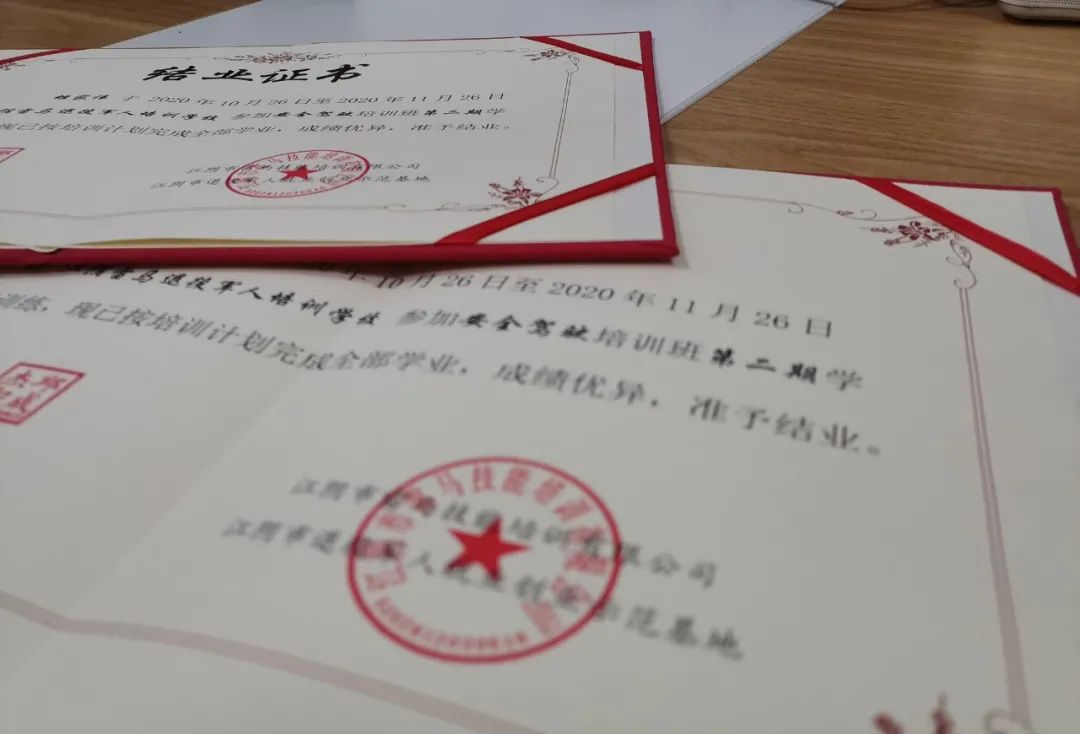 结业证书
于 2020 年 10 月 26 日至 2020 年 11 月 26 日
马退役军人培训学校 参加安全驾驶培训班第二期学
现已按培训计划完成全部学业，成绩优异，准予结业。
江阴市 马技 培训有限公司
江阴市退役军人就业创业示范基地
年 10 月 26 日至 2020 年 11 月 26 日
马退役军人培训学校 参加安全驾驶培训班第二期学
训练，现已按培训计划完成全部学业，成绩优异，准予结业。
马技能培训有限公司
江阴市 马技能培训有限公司
江阴市退役军人就业创业示范基地